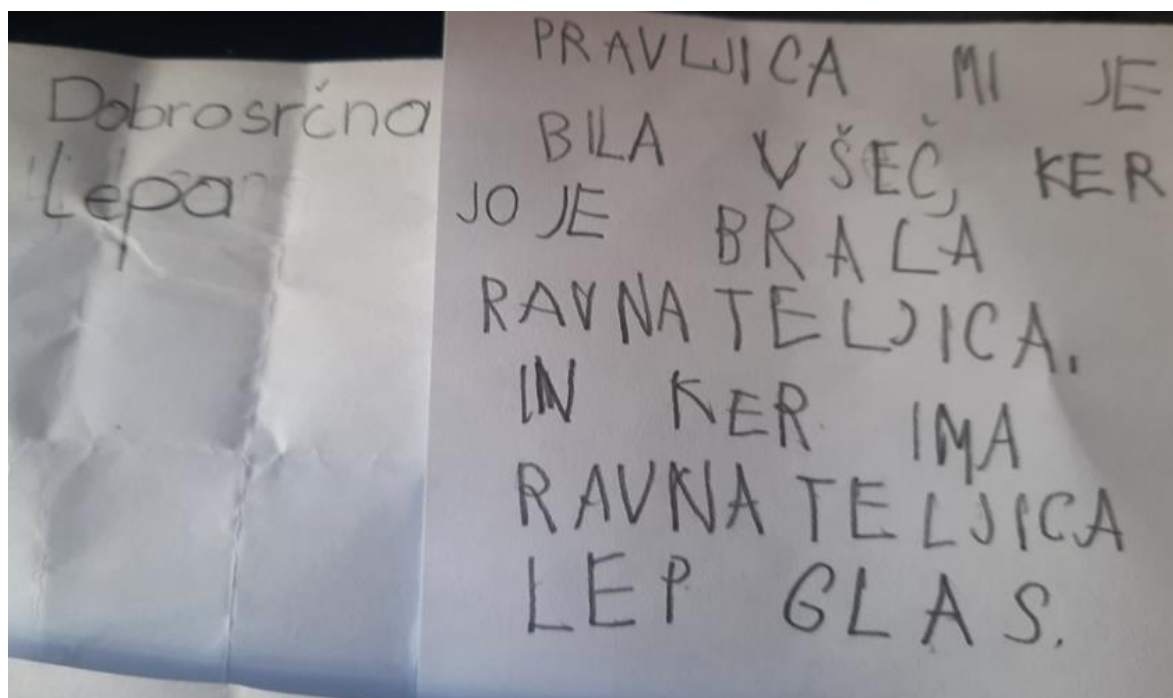 Dobrosrčna
Lepa
PRAVLJICA MI JE
BILA VŠEČ, KER
JO JE BRALA
RAVNATELJICA.
IN KER IMA
RAVNATELJICA
LEP GLAS.